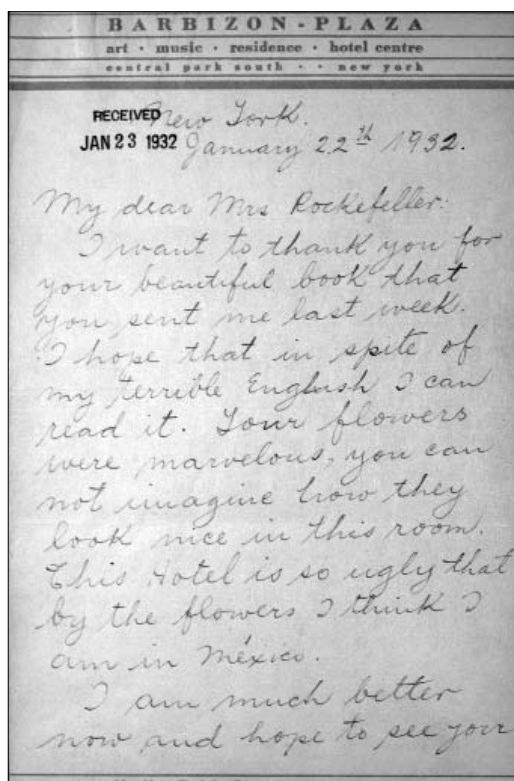 BARBIZON-PLAZA
art · music · residence · hotel centre
central park south · · new york
New York.
RECEIVED
JAN 23 1932
January 22th 1932.
My dear Mrs Rockefeller:
I want to thank you for
your beautiful book that
you sent me last week.
I hope that in spite of
my terrible English I can
read it. Your flowers
were marvelous, you can
not imagine how they
look nice in this room.
This Hotel is so ugly that
by the flowers I think I
am in México.
I am much better
now and hope to see your